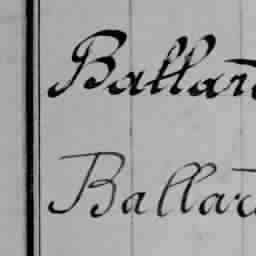 Ballar
Ballar